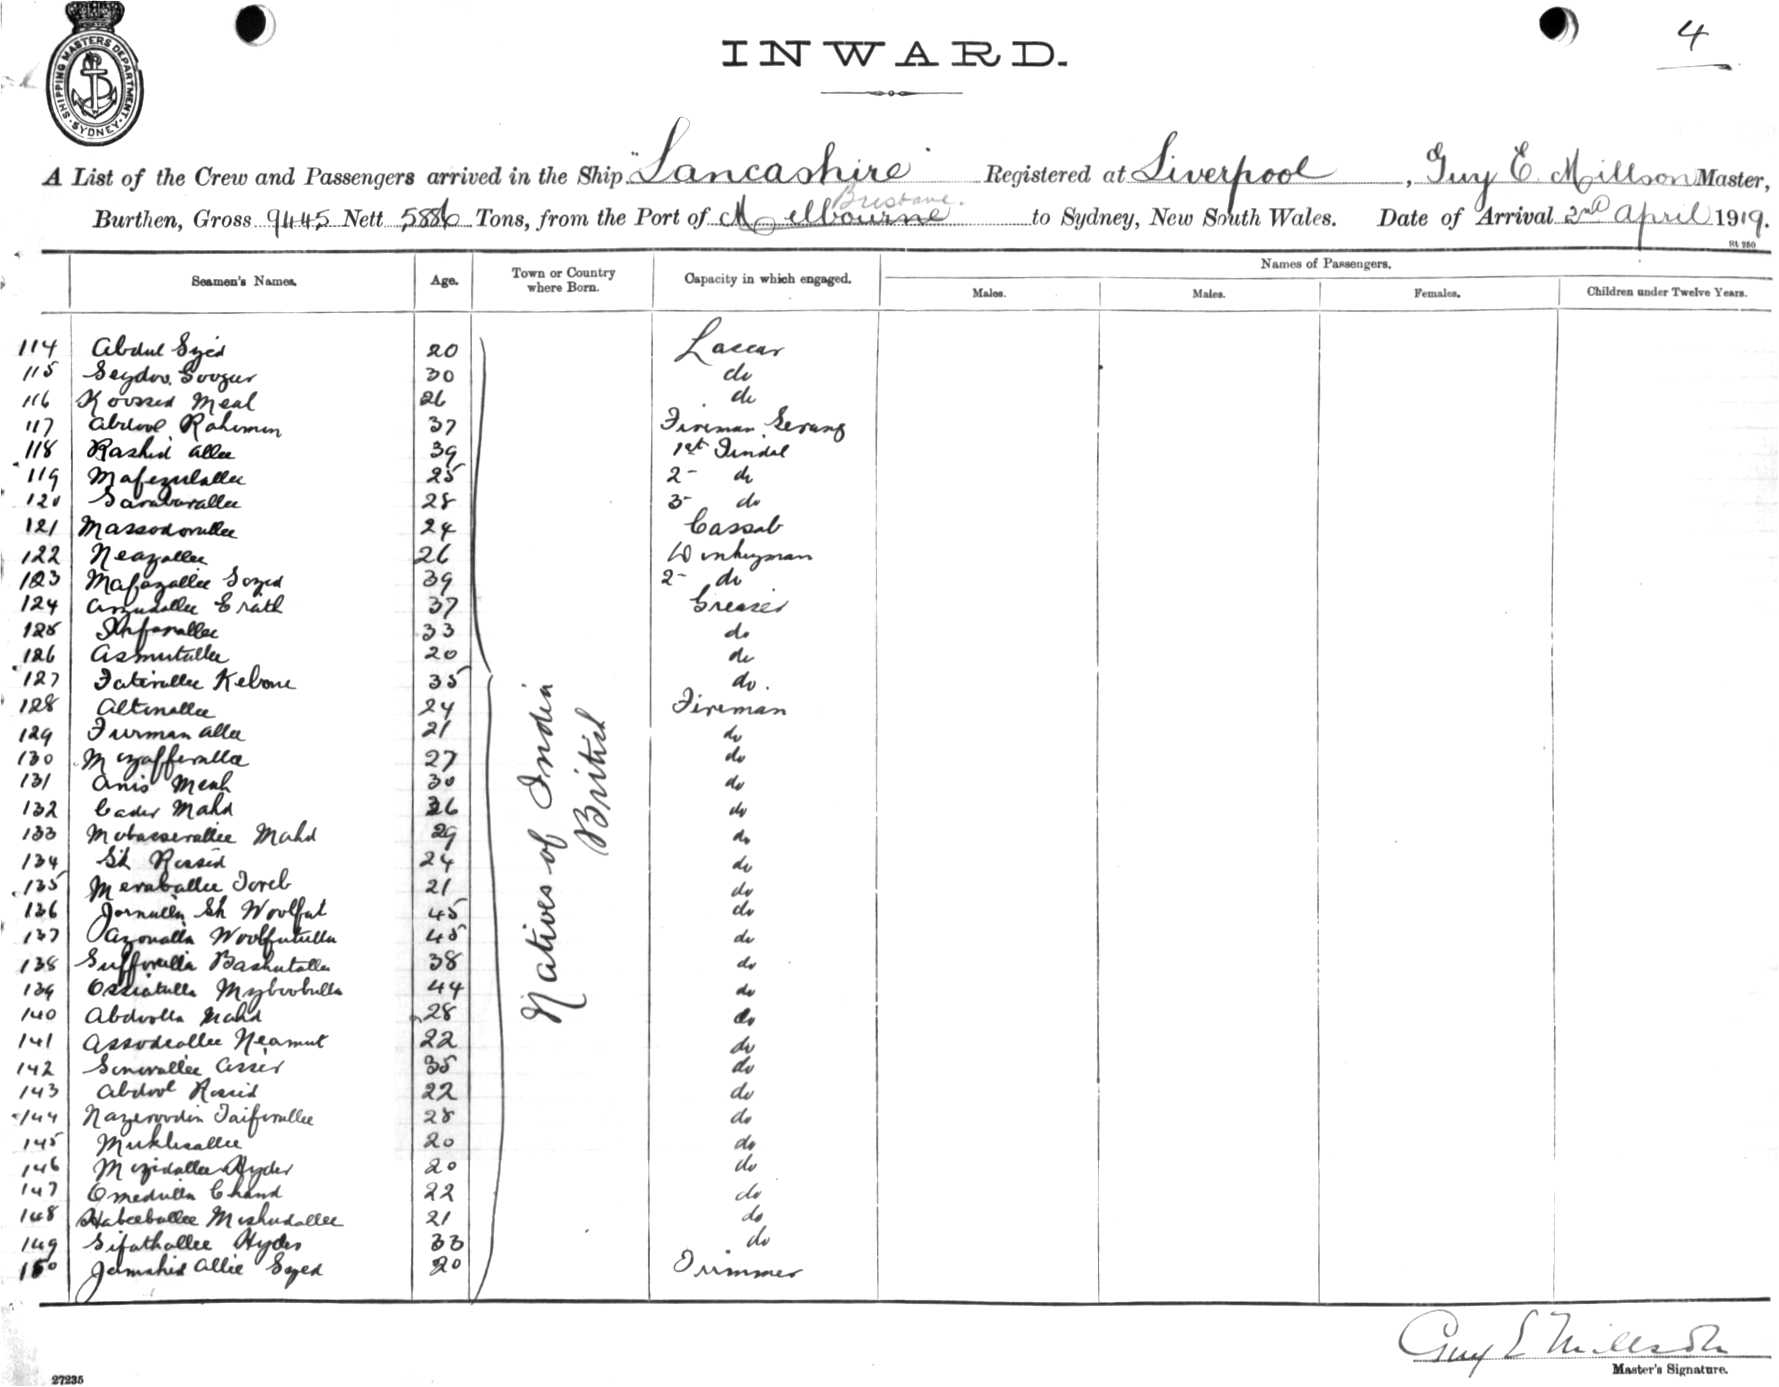 SHIPPING MASTERS DEPARTMENT. SYDNEY
4
INWARD.
A List of the Crew and Passengers arrived in the Ship "Lancashire" Registered at Liverpool, Guy E. Millson Master,
Brisbane.
Burthen, Gross 9445 Nett 5886 Tons, from the Port of Melbourne to Sydney, New South Wales. Date of Arrival 2nd April 1919.
Seamen's Names. Age. Town or Country where Born. Capacity in which engaged. Names of Passengers.
Males. Males. Females. Children under Twelve Years.
114 Abdul Syed 20 Lascar
115 Seydoo Goozur 30 do
116 Koossed Meal 26 do
117 Abdool Rahimin 37 Fireman Serang
118 Rashid Allee 39 1st Tindal
119 Mafezulallee 25 2- do
120 28 3- do
121 24 Cassab
122 Neazallee 26 Winkyman
123 Mafazallee Sozed 39 2- do
124 37 Greaser
125 33 do
126 Asmutallee 20 do
127 Kebone 35 do.
128 Altinallee 24 Fireman
129 Furman Allee 21 do
130 Mozafferalla 27 do
131 Anis Meah 30 do
132 Cader Mahd 36 do
133 Mobasserallee Mahd 29 do
134 Sk Rossid 24 do
135 Meraballee Toreb 21 do
136 Sk Woolfut 45 do
137 Azonalla Woolfutulla 45 do
138 Bashutalla 38 do
139 Ossiatulla Myboobulla 44 do
140 Abdoolla Mahd 28 do
141 Assodeallee Neamut 22 do
142 Sonovallee Asser 35 do
143 Abdool Rossid 22 do
144 Nazeroodin Taiferullee 28 do
145 Muklisallee 20 do
146 Mozidallee Hyder 20 do
147 Omedulla Chand 22 do
148 Habeebullee Moshudallee 21 do
149 Sifathallee Hyder 33 do
150 Jamshid Allie Syed 20 Trimmer
Natives of India
British
Guy E Millson
Master's Signature.
27235